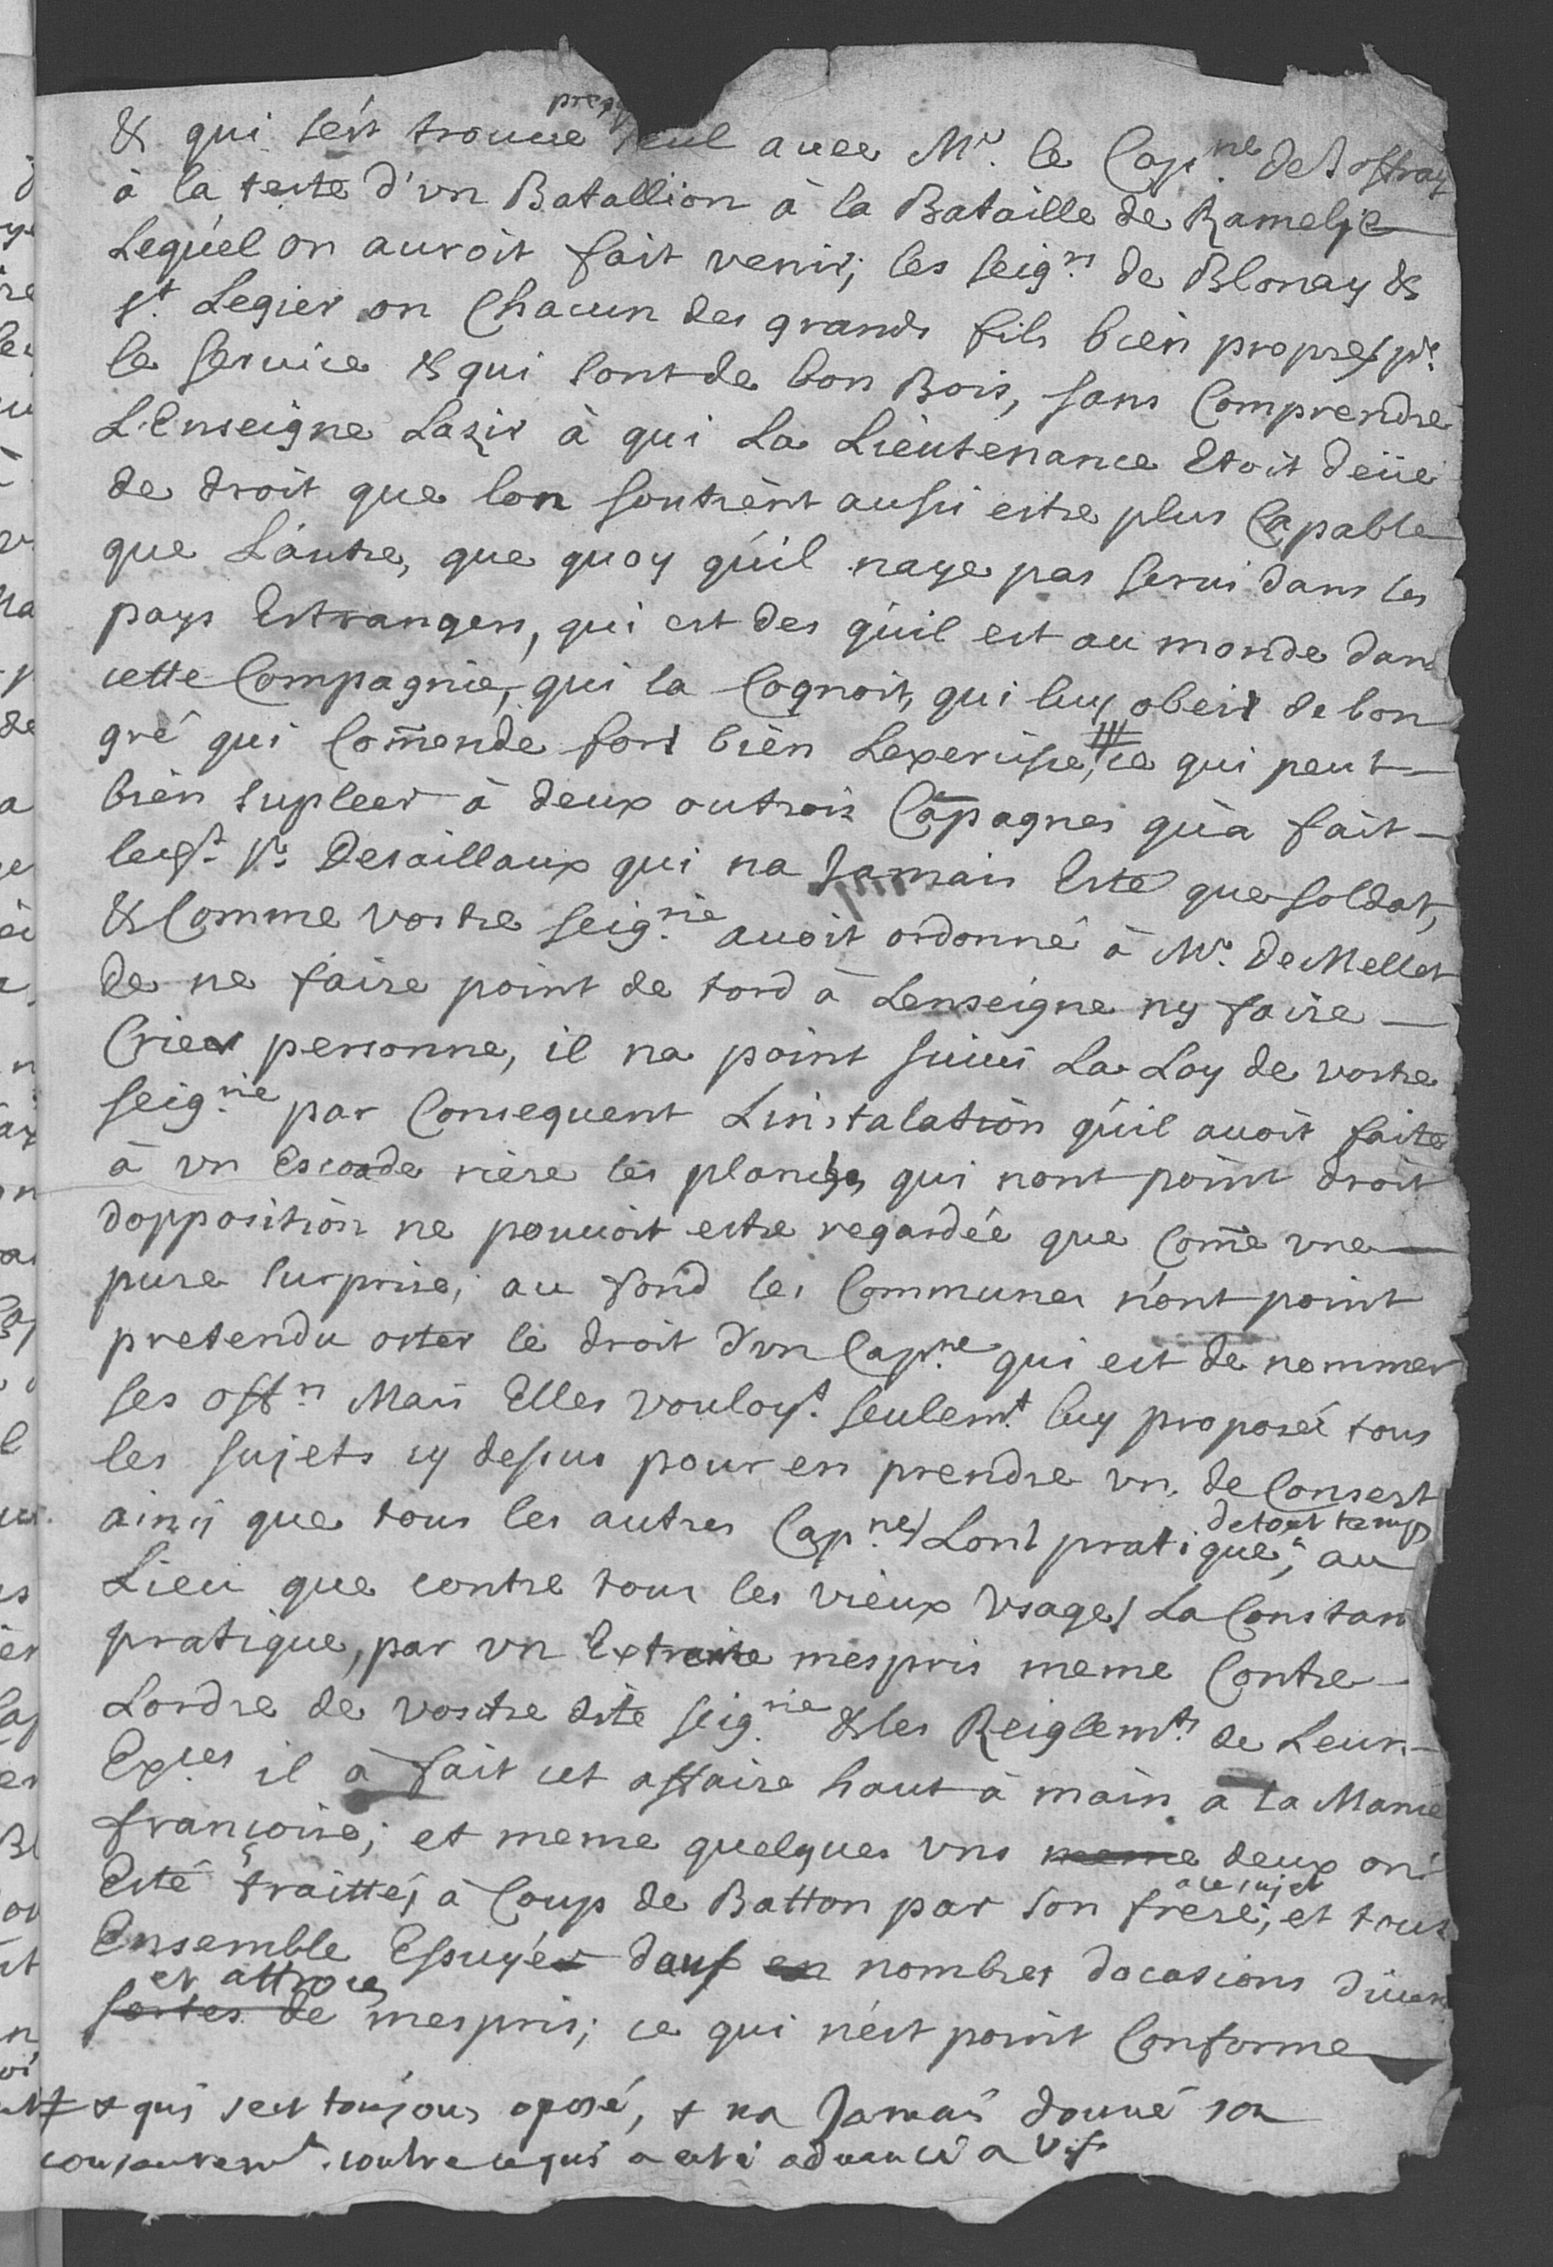 presq
& qui sest trouue seul auec Mr. le Capne. de Joffray
à la teste d'vn Batallion à la Bataille de Ramelje
Lequel on auroit fait venir; les seigrs. de Blonay &
St. Legier on Chacun des grands fils bien propres pr.
le seruice & qui sont de bon Bois, sans Comprendre
L'Enseigne Lazir à qui La Lieutenance Etoit deüe
de droit que lon soutient aussi estre plus Capable
que L'autre, que quoy qu'il naye pas serui dans les
pays Estrangers, qui est des qu'il est au monde dans
cette Compagnie, qui la Cognoit, qui luy obeit de bon
gré qui Com̃ende fort bien Lexercise, ⧻ ce qui peut
bien supleer à deux ou trois Cãpagnes qu'a fait
led.t Sr. Desaillaux qui na Jamais Esté que soldat,
& Comme vostre seig.rie auoit ordonné à Mr. De Mellet
de ne faire point de tord à Lenseigne ny faire
Crier personne, il na point suiui La Loy de vostre
seig.rie par Consequent Linstalation qu'il auoit faite
à vn Escoade riere les planches qui nont point droit
dopposition ne pouuoit estre regardée que Com̃e vne
pure surprise; au fond les Communes n'ont point
pretendu oster le droit d'vn Capne. qui est de nommer
ses offrs. Mais Elles vouloyt. seulemt. luy proposer tous
les sujets cy dessus pour en prendre vn de Consert
de tout temps
ainsi que tous les autres Capnes. Lont pratiqué, au
Lieu que contre tous les vieux Vsages La Constan
pratique, par vn Extreme mespris meme Contre
Lordre de vostre dite seig.rie & les Reiglemts. de Leurs
Exces. il à fait cet affaire haut à main à la Manie
françoise; et meme quelques vns meme deux ont
a ce sujet
Esté traittés à Coup de Batton par son frere; et tous
Ensemble Essuyer en nombres docasions diuers
et attroces
sortes de mespris; ce qui n'est point Conforme
⧻ & qui sest toujours oposé, & na Jamais donné son
consentemt. contre ce qui a esté aduancé a V.S.